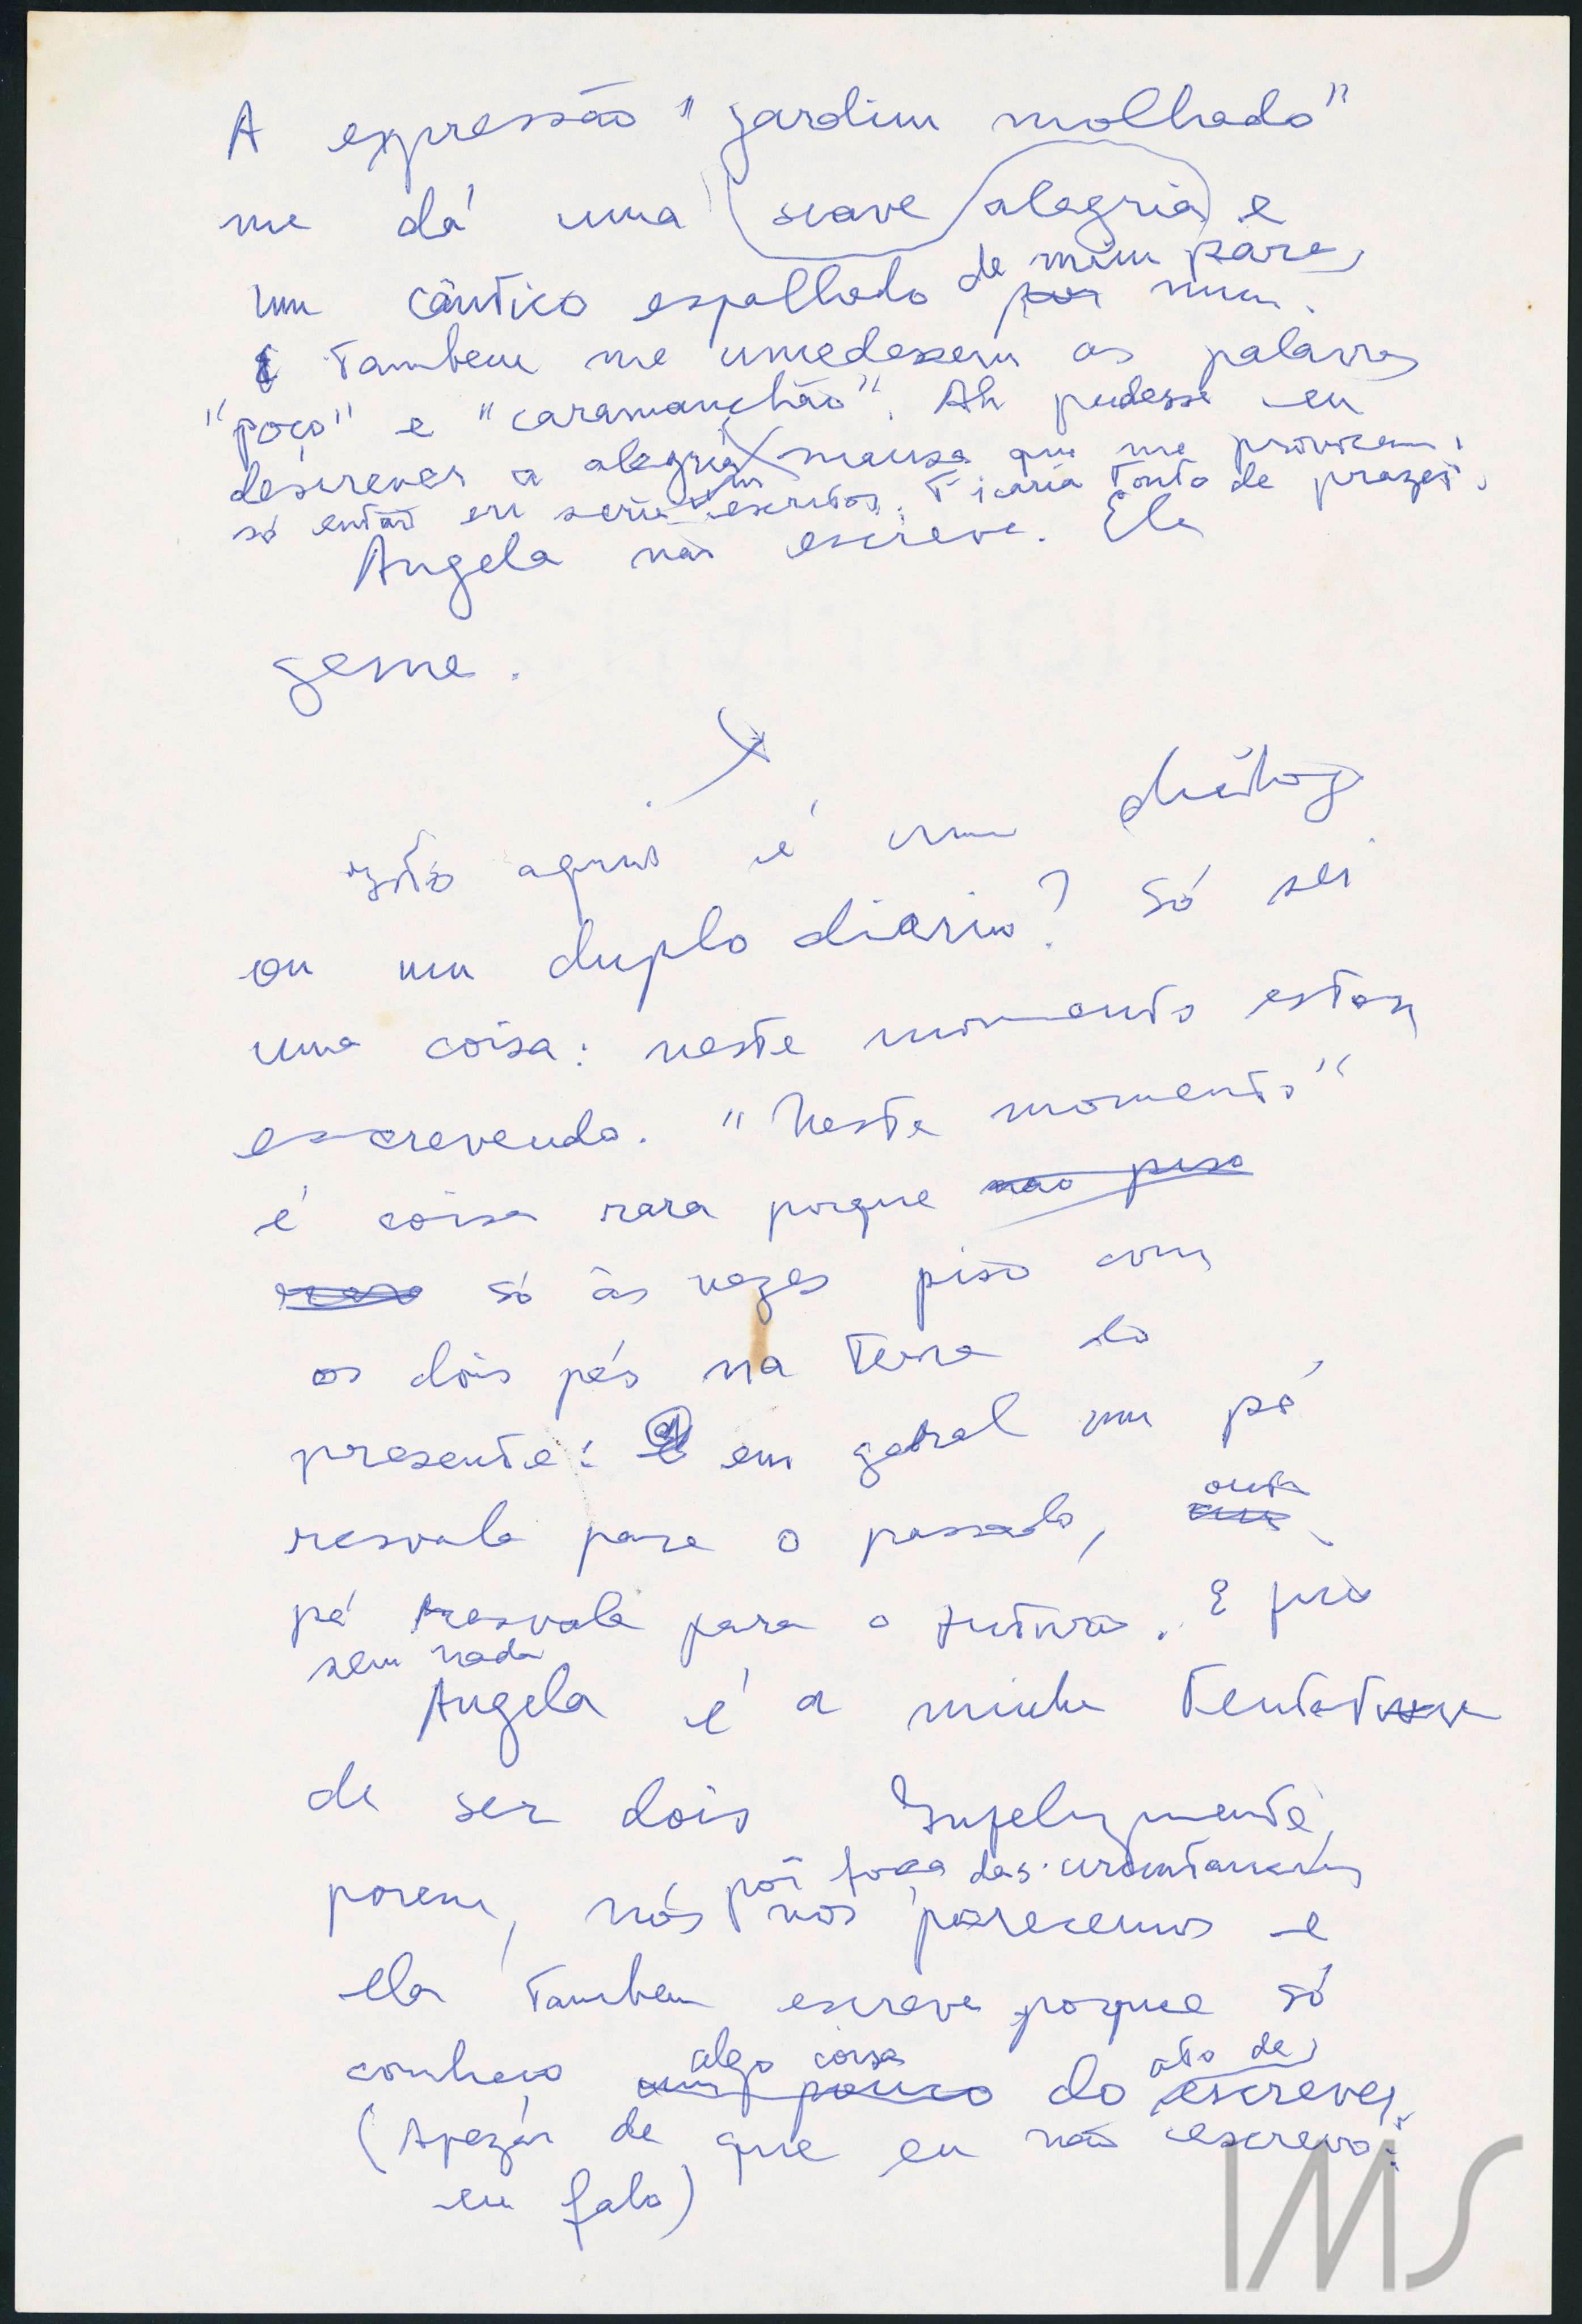 A expressão "jardim molhado"
me dá uma suave alegria e
um cântico espalhado de mim para
por mim.
E tambem me umedessem as palavras
"poço" e "caramanchão". Ah pudesse eu
descrever a alegria mansa que me provocam,
só então eu seria um escritor. Ficaria tonto de prazer.
Angela não escreve. Ela
geme.
Isto aqui é um diálogo
ou um duplo diario? Só sei
uma coisa: neste momento estou
escrevendo. "Neste momento"
é coisa rara porque não piso
só às vezes piso com
os dois pés na terra do
presente: em geral um pé
resvala para o passado, outro
pé resvala para o futuro. E fico
sem nada
Angela é a minha tentativa
de ser dois Infelizmente,
por força das circunstancias
porem, nós nos parecemos e
ela tambem escreve porque só
algo coisa ato de
conheco um pouco do escrever.
(Apezar de que eu não escrevo:
eu falo)
IMS